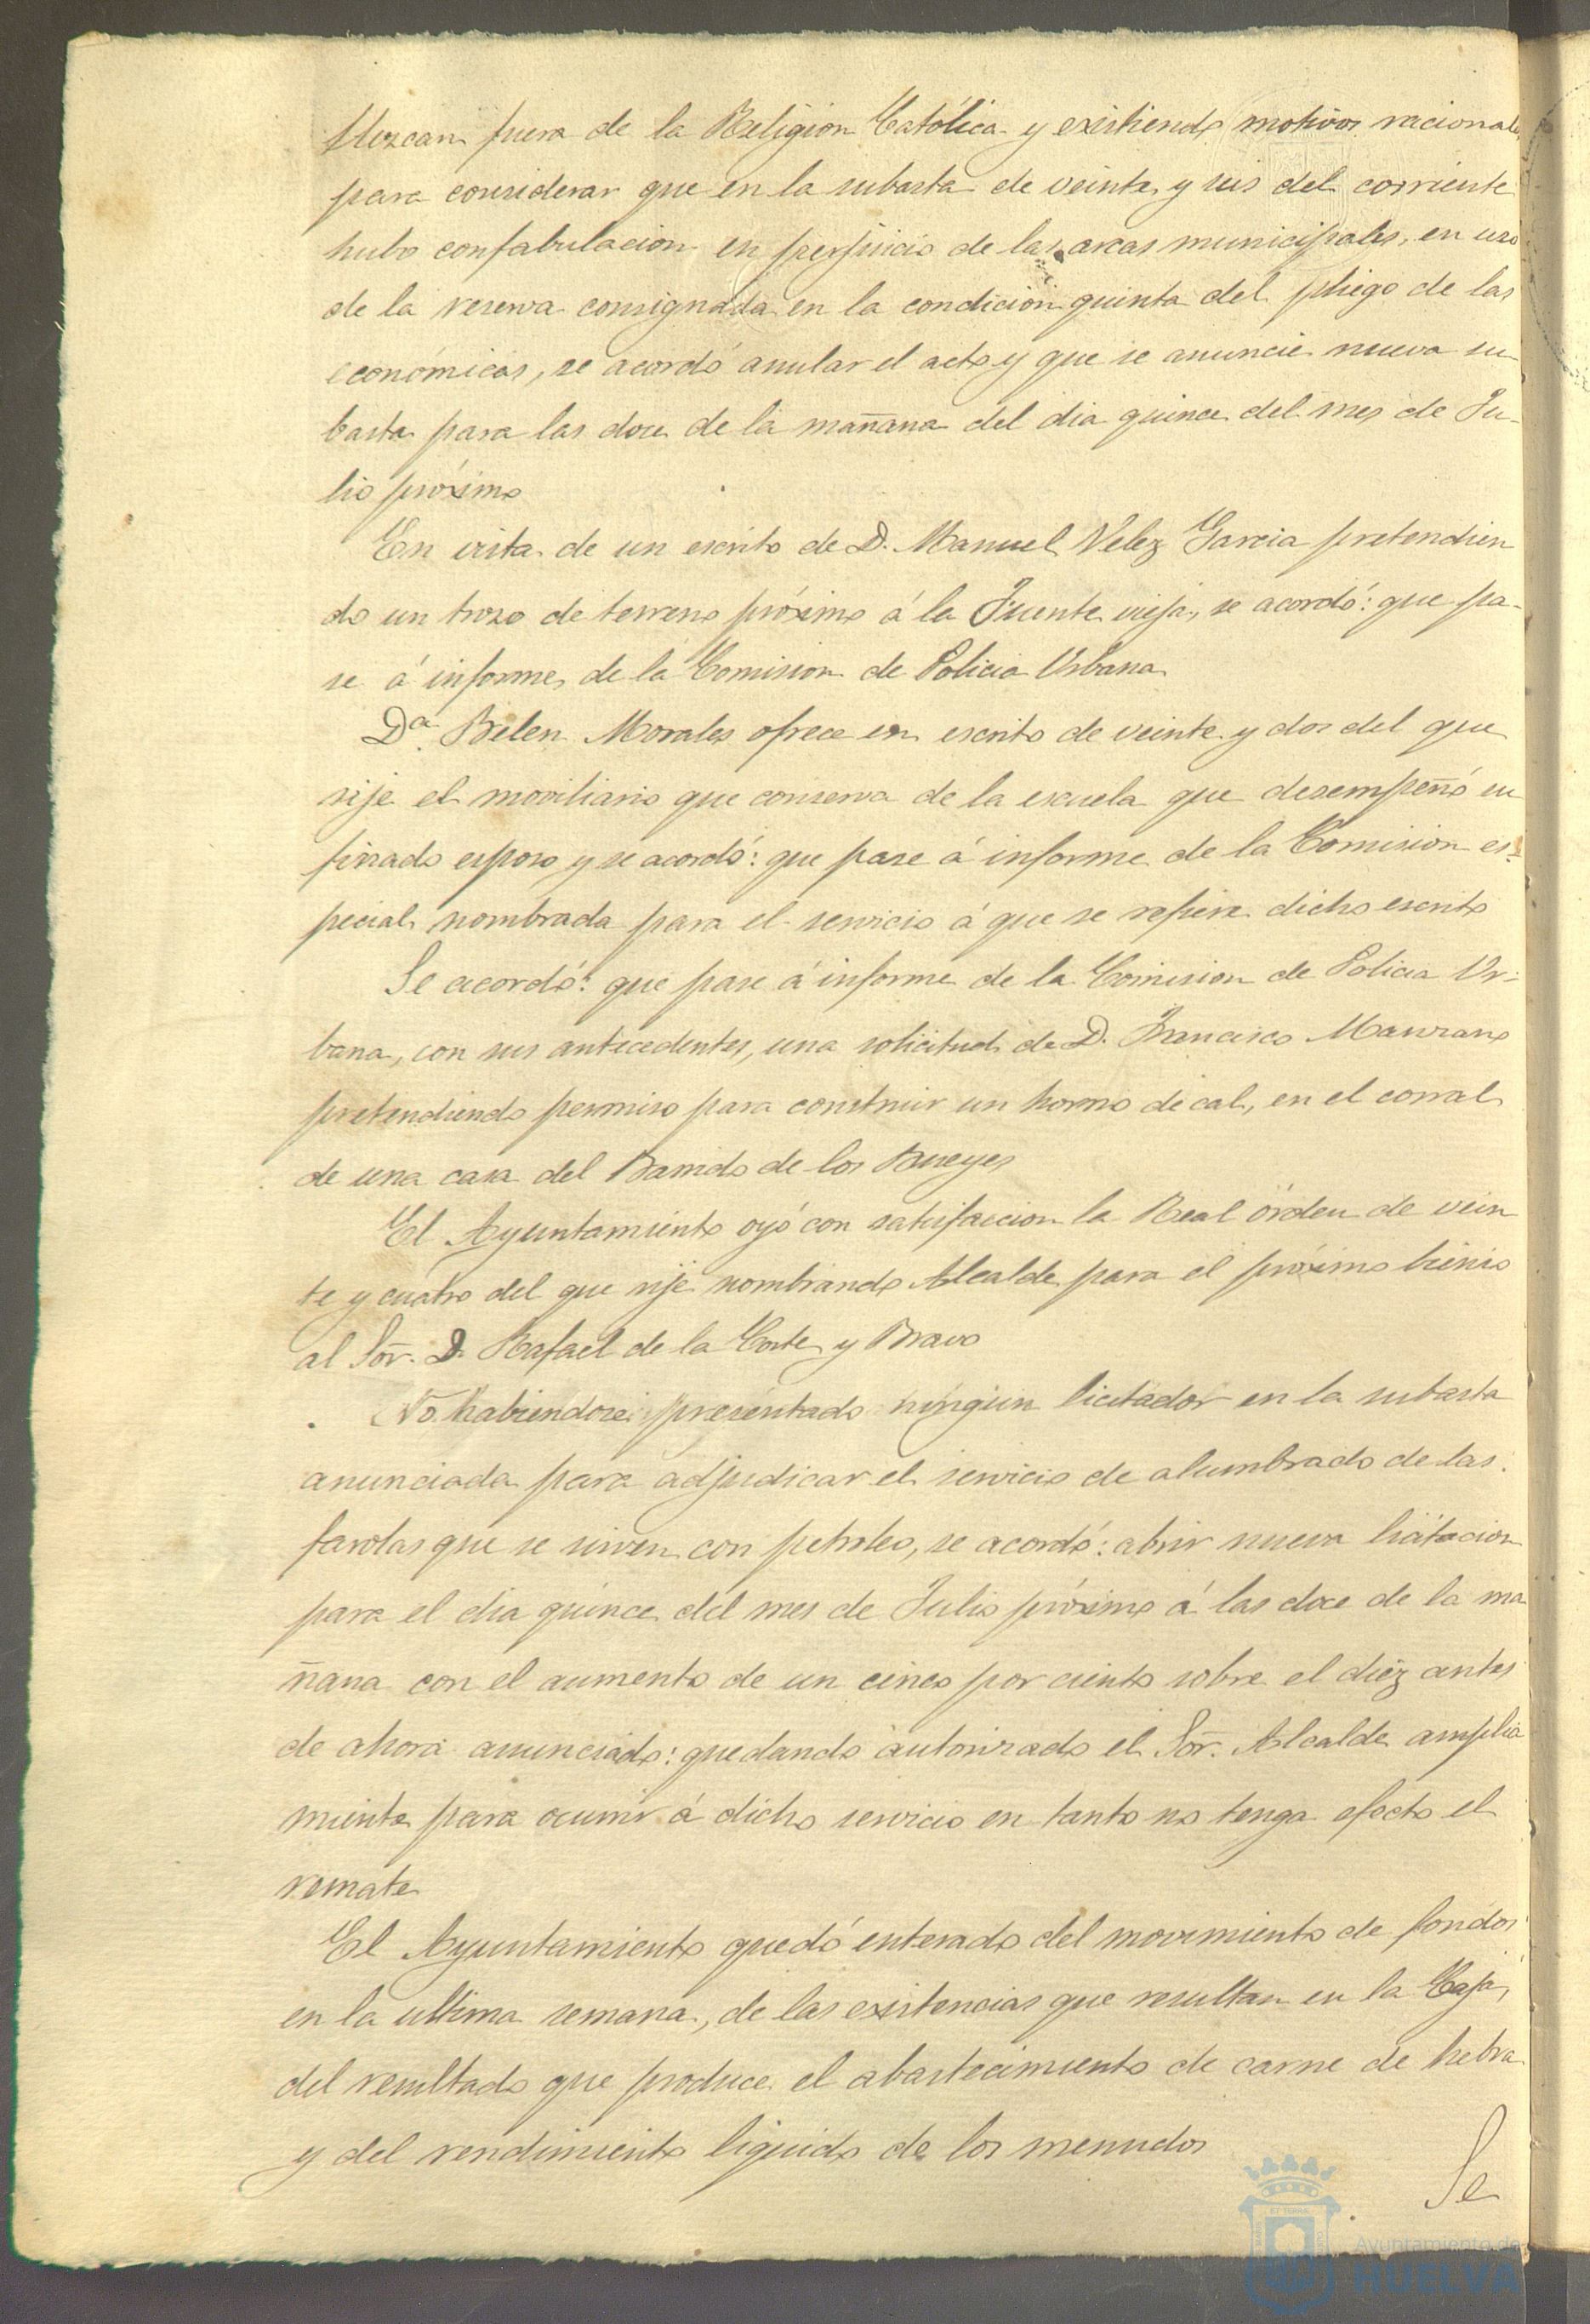 llezcan fuera de la Religion Católica y existiendo motivos racionales
para considerar que en la subasta de veinte y seis del corriente
hubo confabulacion en perjuicio de las arcas municipales, en uso
de la reserva consignada en la condición quinta del pliego de las
económicas, se acordó anular el acto y que se anuncie nueva su-
basta para las doce de la mañana del dia quince del mes de Ju-
lio próximo
En vista de un escrito de D. Manuel Velez Garcia pretendien
do un trozo de terreno próximo á la Fuente vieja, se acordó: que pa-
se á informe de la Comision de Policia Urbana
Dª. Belen Morales ofrece en escrito de veinte y dos del que
rije el moviliario que conserva de la escuela que desempeñó su
finado esposo y se acordó: que pase á informe de la Comision es-
pecial nombrada para el servicio á que se refiere dicho escrito
Se acordó: que pase á informe de la Comision de Policia Ur-
bana, con sus antecedentes, una solicitud de D. Francisco Manzano
pretendiendo permiso para construir un horno de cal, en el corral
de una casa del Barrido de los Bueyes
El Ayuntamiento oyó con satisfaccion la Real órden de vein
te y cuatro del que rije nombrando Alcalde para el próximo bienio
al Sor. D. Rafael de la Corte y Bravo
No habiendose presentado ningun licitador en la subasta
anunciada para adjudicar el servicio de alumbrado de las
farolas que se sirven con petroleo, se acordó: abrir nueva licitacion
para el dia quince del mes de Julio próximo á las doce de la ma
ñana con el aumento de un cinco por ciento sobre el diez antes
de ahora anunciado: quedando autorizado el Sor. Alcalde amplia
mente para ocurrir á dicho servicio en tanto no tenga efecto el
remate
El Ayuntamiento quedó enterado del movimiento de fondos
en la ultima semana, de las existencias que resultan en la Caja,
del resultado que produce el abastecimiento de carne de hebra
y del rendimiento liquido de los menudos
Se
Ayuntamiento de
HUELVA